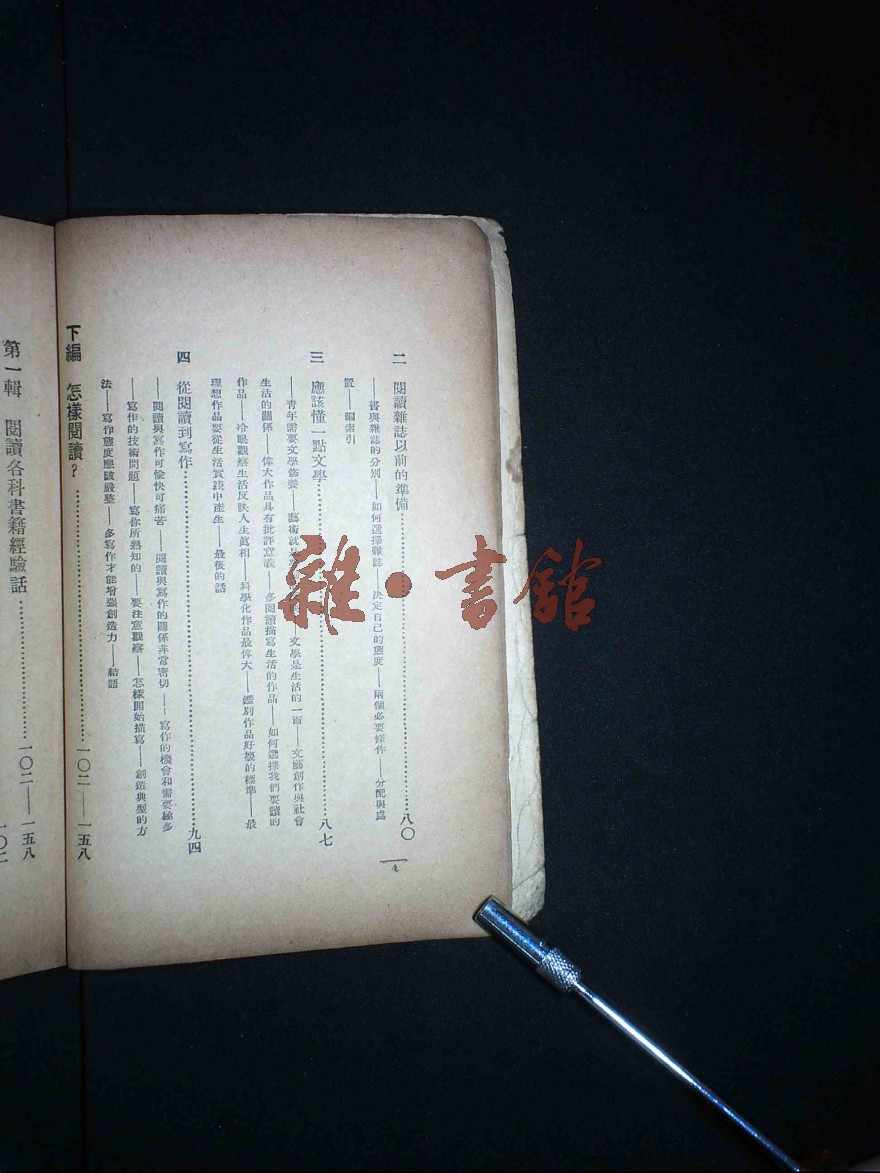 二　閱讀雜誌以前的準備……八〇
——書與雜誌的分別——如何選擇雜誌——決定自己的態度——兩個必要條件——分配與處
置——編索引
三　應該懂一點文學……八七
——青年需要文學修養——藝術就是——文學是生活的一面——文藝創作與社會
生活的關係——偉大作品具有批評意義——多閱讀描寫生活的作品——如何選擇我們要讀的
作品——冷眼觀察生活反映人生眞相——科學化作品最偉大——鑑別作品好壞的標準——最
理想作品要從生活實踐中產生——最後的話
四　從閱讀到寫作……九四
——閱讀與寫作可愉快可痛苦——閱讀與寫作的關係非常密切——寫作的機會和需要極多
——寫作的技術問題——寫你所熟知的——要注意觀察——怎樣開始描寫——創造典型的方
法——寫作態度應該嚴整——多寫作才能增强創造力——結語
下編　怎樣閱讀？……一〇二——一五八
第一輯　閱讀各科書籍經驗話……一〇二——一五八
一〇二
4
雜·書館